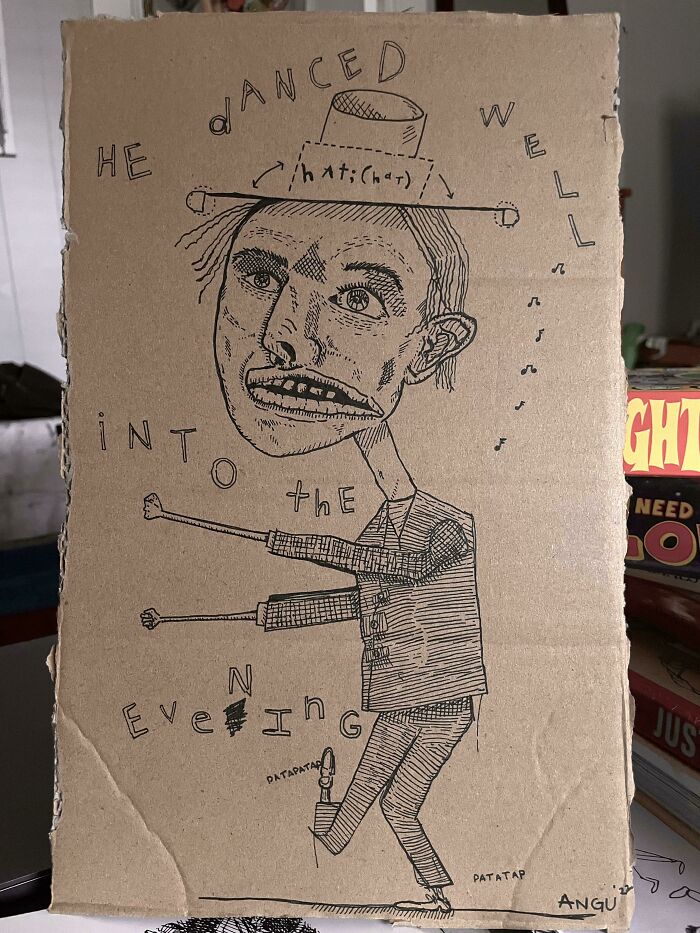 HE dANCED WELL
hAt; (hat)
iNTO thE
EveNInG
PATAPATAP
PATATAP
ANGU '22
GHT
NEED
LO
JUS